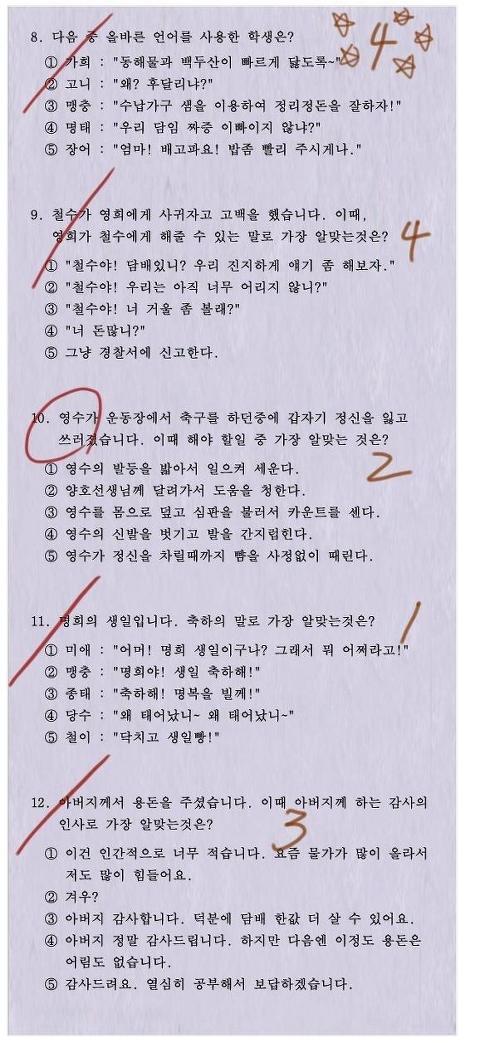 8. 다음 중 올바른 언어를 사용한 학생은?
4
① 가희 : "동해물과 백두산이 빠르게 닳도록~"
② 고니 : "왜? 후달리냐?"
③ 맹충 : "수납가구 샘을 이용하여 정리정돈을 잘하자!"
④ 명태 : "우리 담임 짜증 이빠이지 않냐?"
⑤ 장어 : "엄마! 배고파요! 밥좀 빨리 주시게나."
9. 철수가 영희에게 사귀자고 고백을 했습니다. 이때,
영희가 철수에게 해줄 수 있는 말로 가장 알맞는것은?
4
① "철수야! 담배있니? 우리 진지하게 얘기 좀 해보자."
② "철수야! 우리는 아직 너무 어리지 않니?"
③ "철수야! 너 거울 좀 볼래?"
④ "너 돈많니?"
⑤ 그냥 경찰서에 신고한다.
10. 영수가 운동장에서 축구를 하던중에 갑자기 정신을 잃고
쓰러졌습니다. 이때 해야 할일 중 가장 알맞는 것은?
2
① 영수의 발등을 밟아서 일으켜 세운다.
② 양호선생님께 달려가서 도움을 청한다.
③ 영수를 몸으로 덮고 심판을 불러서 카운트를 센다.
④ 영수의 신발을 벗기고 발을 간지럽힌다.
⑤ 영수가 정신을 차릴때까지 뺨을 사정없이 때린다.
11. 명희의 생일입니다. 축하의 말로 가장 알맞는것은?
1
① 미애 : "어머! 명희 생일이구나? 그래서 뭐 어쩌라고!"
② 맹충 : "명희야! 생일 축하해!"
③ 종태 : "축하해! 명복을 빌께!"
④ 당수 : "왜 태어났니~ 왜 태어났니~"
⑤ 철이 : "닥치고 생일빵!"
12. 아버지께서 용돈을 주셨습니다. 이때 아버지께 하는 감사의
인사로 가장 알맞는것은?
3
① 이건 인간적으로 너무 적습니다. 요즘 물가가 많이 올라서
저도 많이 힘들어요.
② 겨우?
③ 아버지 감사합니다. 덕분에 담배 한값 더 살 수 있어요.
④ 아버지 정말 감사드립니다. 하지만 다음엔 이정도 용돈은
어림도 없습니다.
⑤ 감사드려요. 열심히 공부해서 보답하겠습니다.